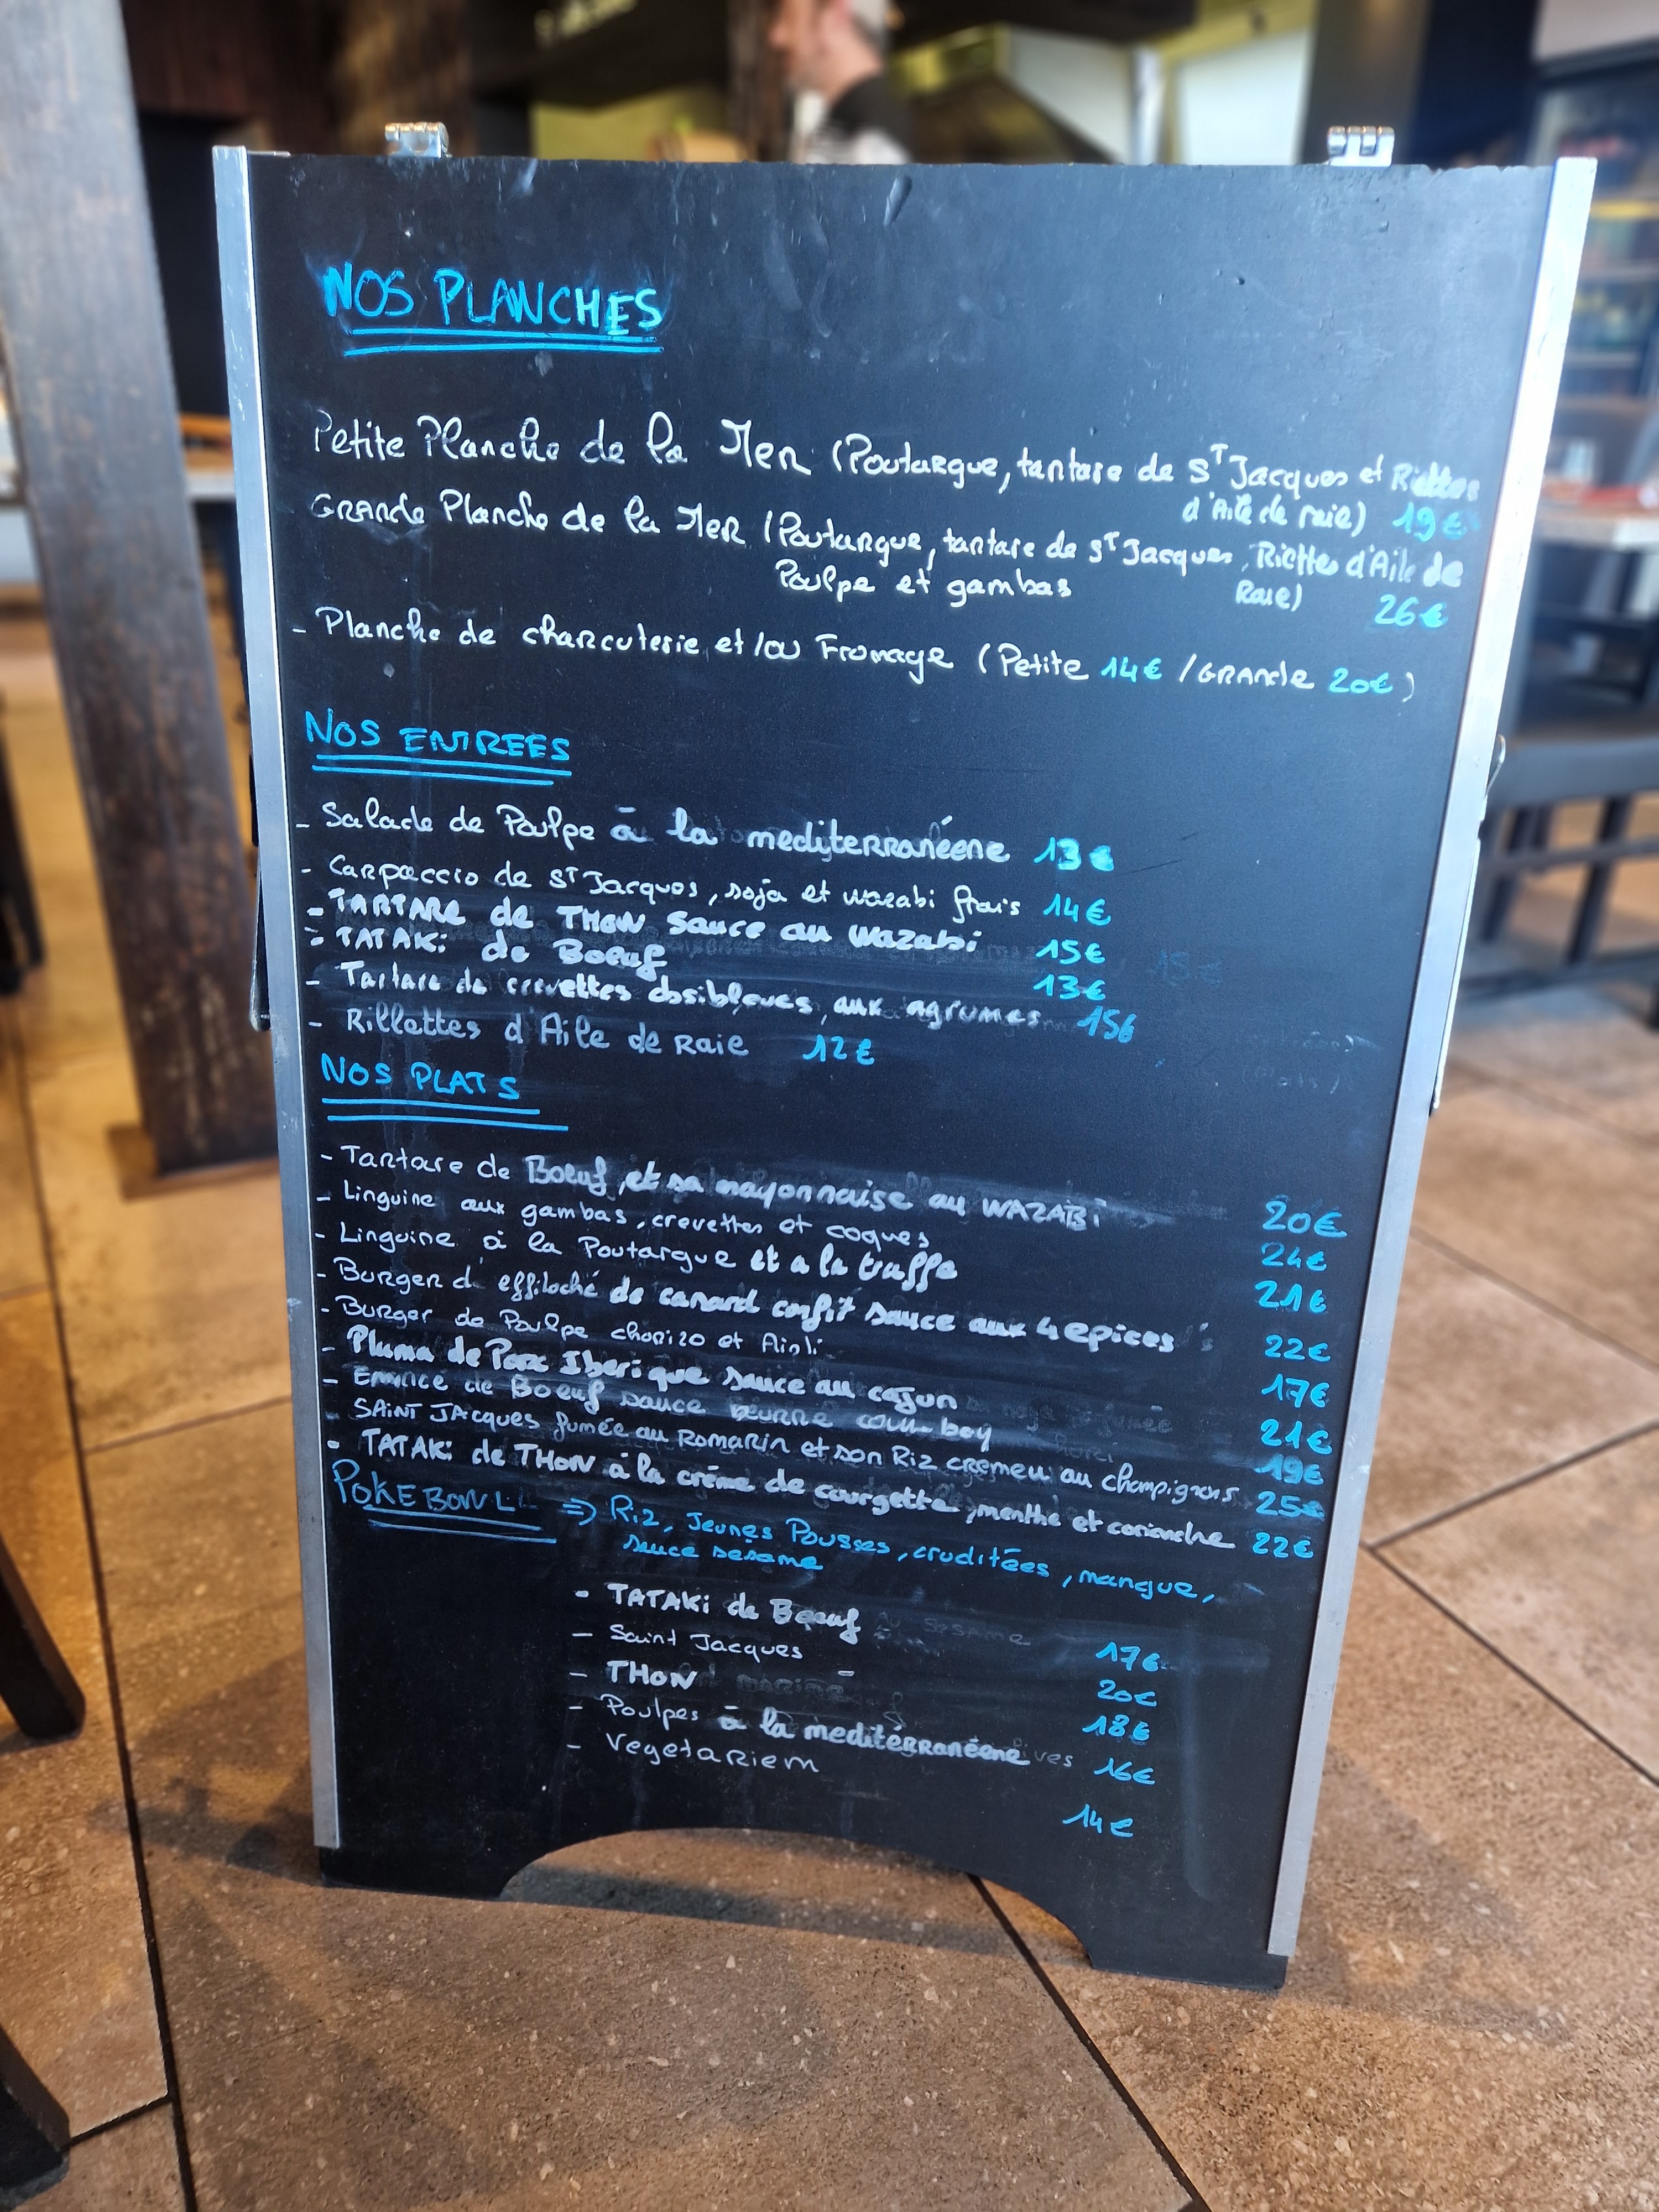 NOS PLANCHES
Petite Planche de la Mer (Poutargue, tartare de St Jacques et Riettes
d'Aile de raie) 19€
GRANDE Planche de la Mer (Poutargue, tartare de St Jacques, Riettes d'Aile de
Poulpe et gambas Raie) 26€
- Planche de charcuterie et/ou Fromage (Petite 14€ / GRANDE 20€)
NOS ENTREES
- Salade de Poulpe à la mediterranéene 13€
- Carpaccio de ST Jacques, soja et wazabi frais 14€
- TARTARE de THON sauce au wazabi 15€
- TATAKi de Boeuf 13€
- Tartare de crevettes obsibloues, aux agrumes 15€
- Rillettes d'Aile de Raie 12€
NOS PLATS
- Tartare de Boeuf, et sa mayonnaise au WAZABi 20€
- Linguine aux gambas, crevettes et coques 24€
- Linguine à la Poutargue et a la truffe 21€
- Burger d'effiloché de canard confit sauce aux 4 epices 22€
- Burger de Poulpe chorizo et Aioli 17€
- Pluma de Porc Iberique sauce au cajun 21€
- Emincé de Boeuf sauce beurre cow boy 19€
- SAiNT JAcques fumée au Romarin et son Riz cremeu au champignons 25€
- TATAKi de THON à la crème de courgette, menthe et coriandre 22€
POKE BOWL => Riz, Jeunes Pousses, cruditées, mangue,
sauce sesame
- TATAKi de Boeuf 17€
- Saint Jacques 20€
- THON 18€
- Poulpes à la meditérranéene 16€
- Vegetariem 14€